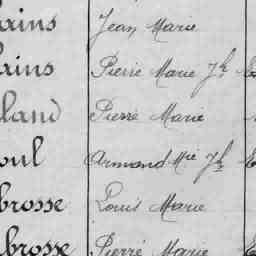 ains Jean Marie
ains Pierre Marie Jh
land Pierre Marie
oul Armand Mie Jh
brosse Louis Marie
brosse Pierre Marie